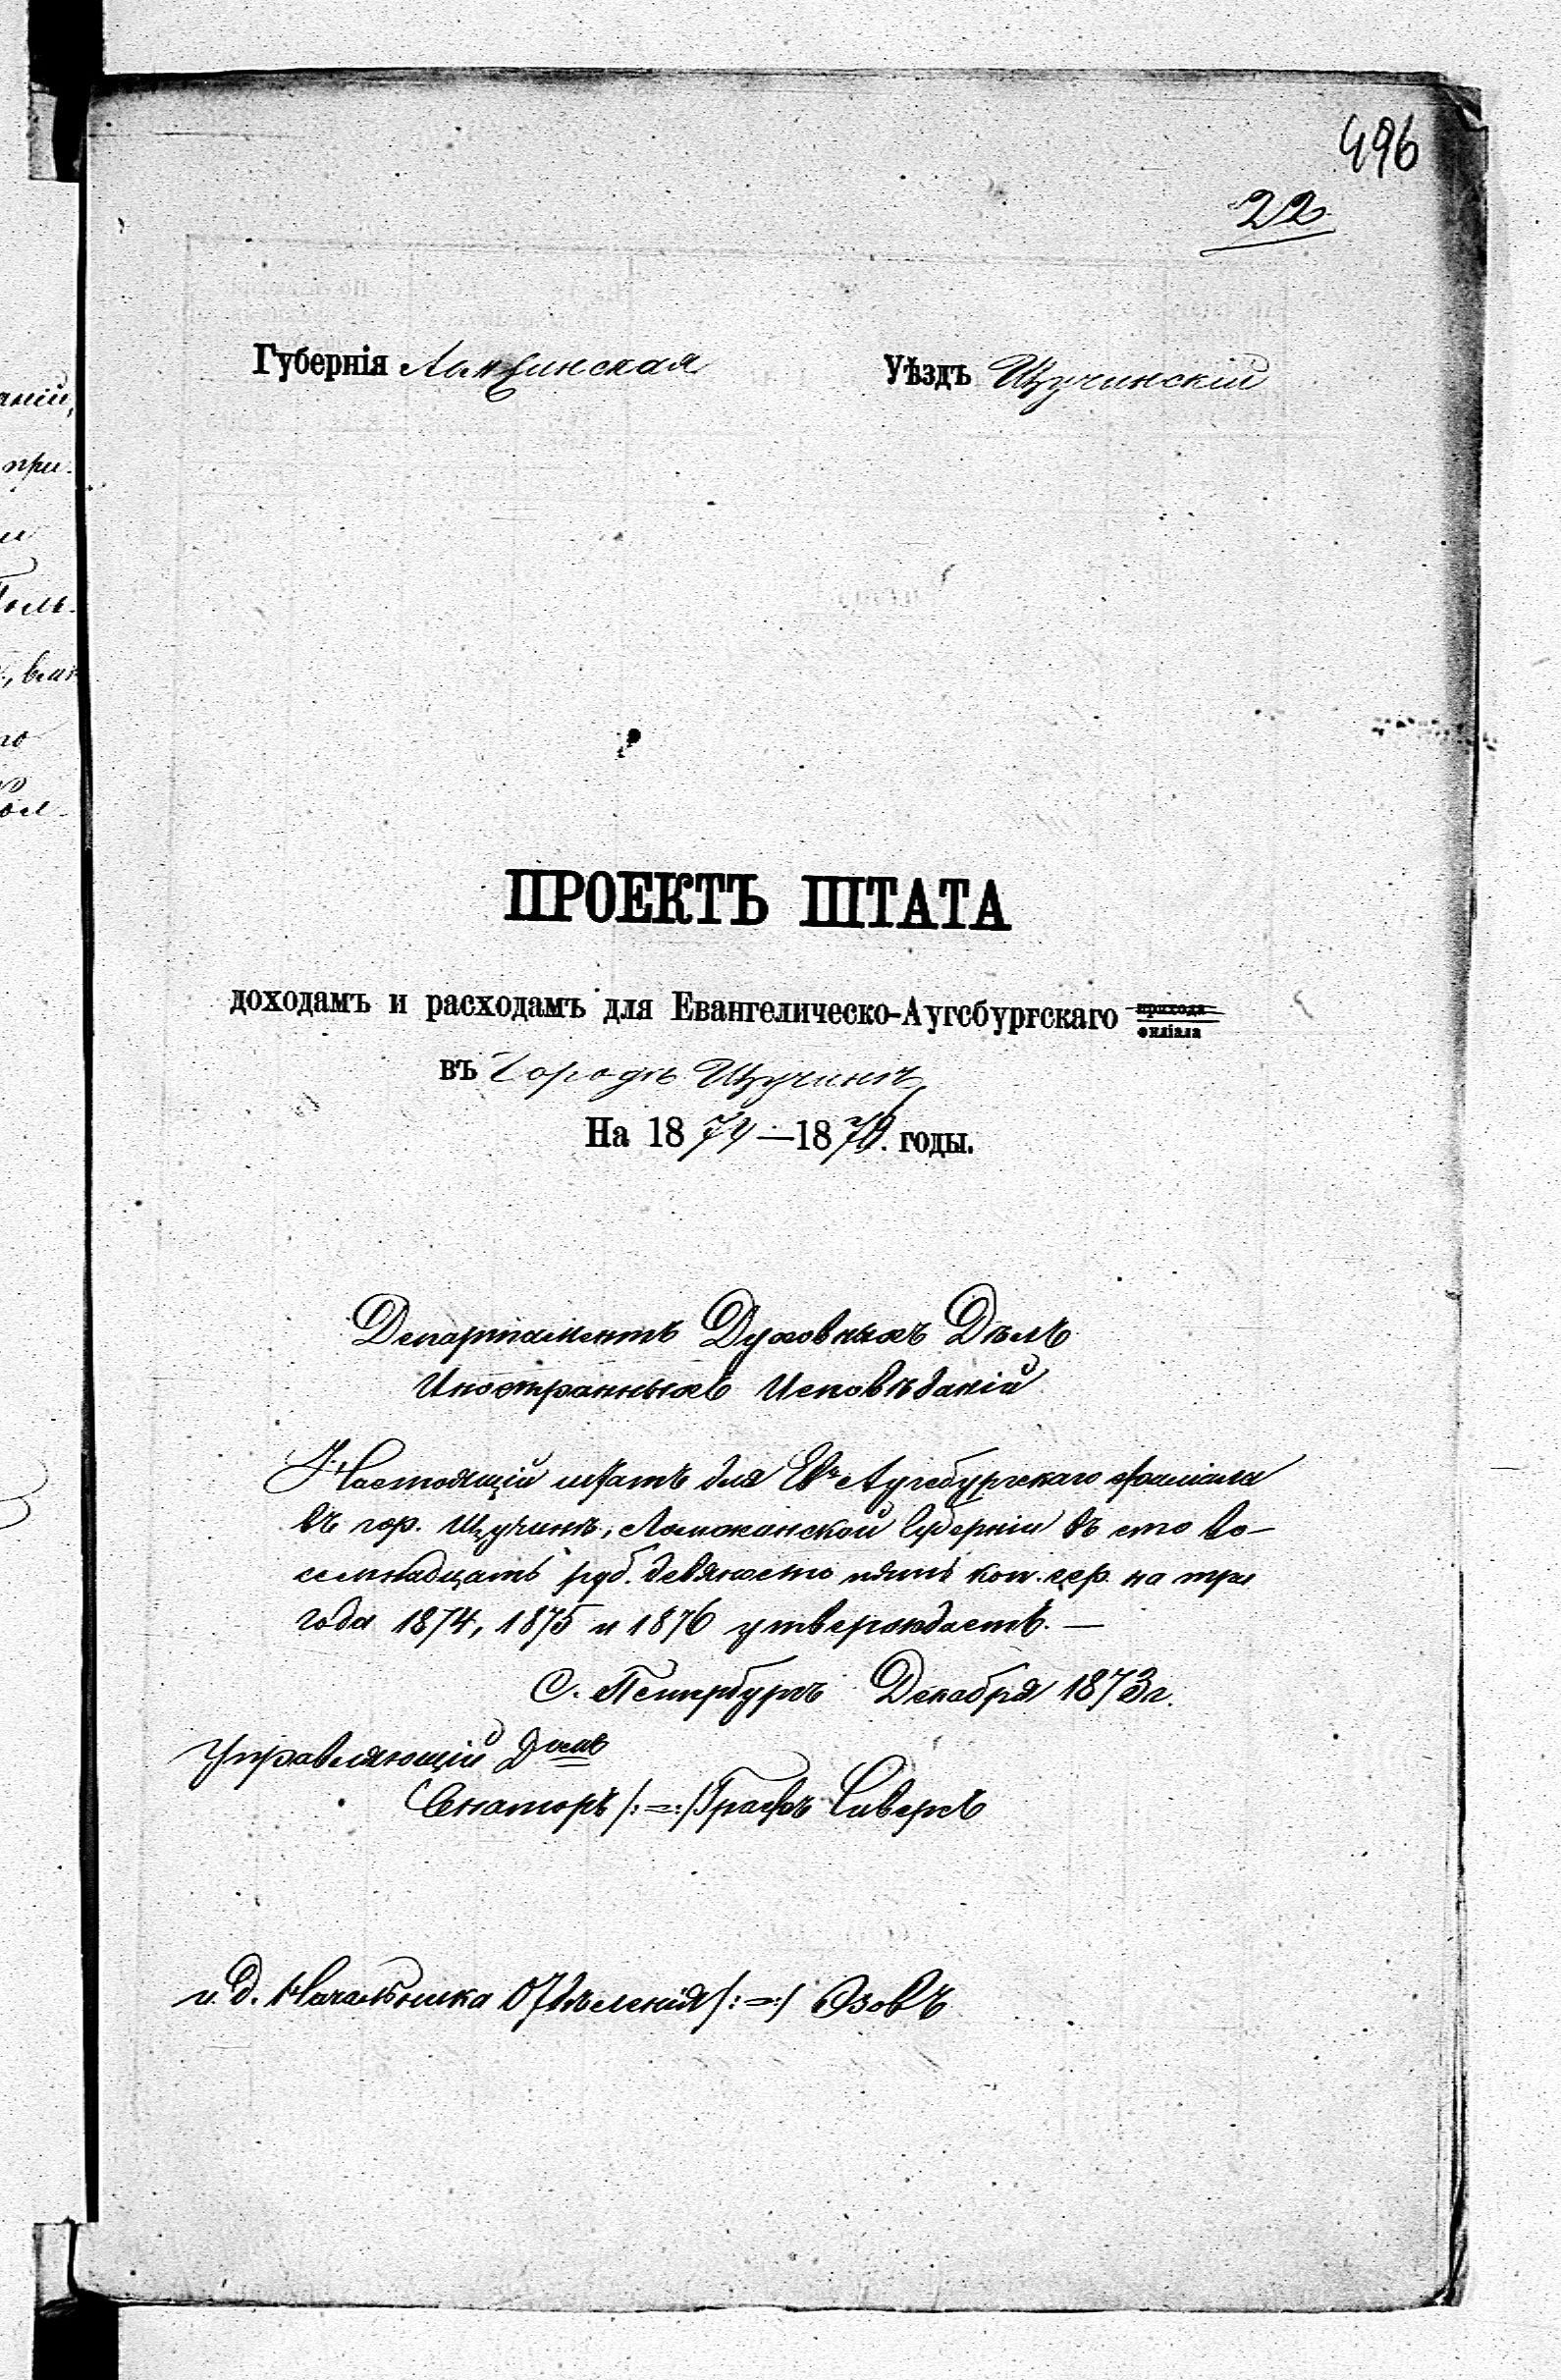 496
22
Губернія Ломжинская Уѣздъ Щучинскій
ПРОЕКТЪ ШТАТА
доходамъ и расходамъ для Евангелическо-Аугсбургскаго прихода
филіала
въ городѣ Щучинѣ
На 1874—1876. годы.
Департаментъ Духовныхъ Дѣлъ
Иностранныхъ Исповѣданій
Настоящій штатъ для Ев. Аугсбургскаго филіала
въ гор. Щучинѣ, Ломжинской Губерніи въ сто во-
семнадцать руб. девяносто пять коп. сер. на три
года 1874, 1875 и 1876 утверждаетъ. —
С. Петербургъ Декабря 1873 г.
Управляющій
Сенаторъ /:=:/ Графъ Сиверсъ
и. д. Начальника Отдѣленія /:=:/ Эзовъ
аніи,
при-
и
Голь-
го